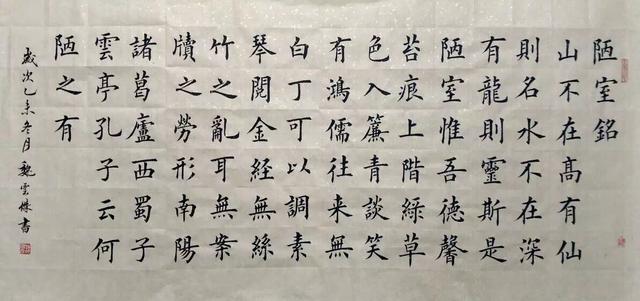 陋室銘
山不在高有仙
則名水不在深
有龍則靈斯是
陋室惟吾德馨
苔痕上階綠草
色入簾青談笑
有鴻儒往来無
白丁可以調素
琴閱金経無絲
竹之亂耳無案
牘之勞形南陽
諸葛廬西蜀子
雲亭孔子云何
陋之有
歲次乙未冬月 魏雲書